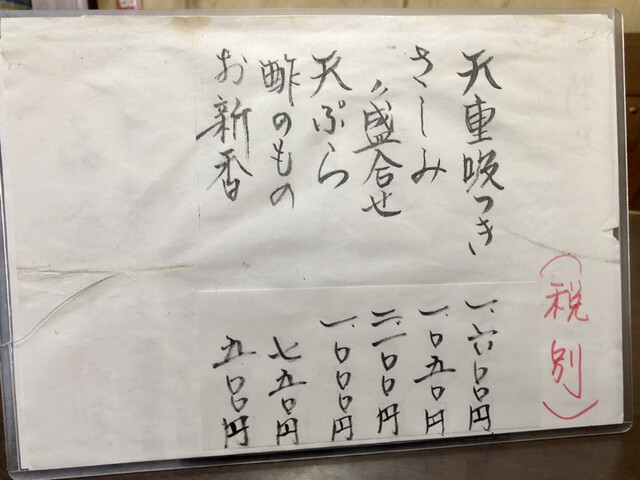 （税別）
天重吸つき 一、六〇〇円
さしみ 一、〇五〇円
〃盛合せ 二、一〇〇円
天ぷら 一、〇〇〇円
酢のもの 七五〇円
お新香 五〇〇円